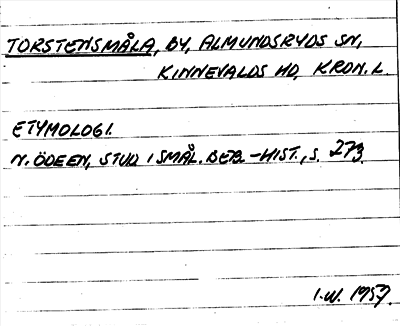 TORSTENSMÅLA, BY, ALMUNDSRYDS SN,
KINNEVALDS HD, KRON. L.
ETYMOLOGI.
N. ÖDEEN, STUD I SMÅL. BEB.-HIST., S. 273.
I.W. 1959.